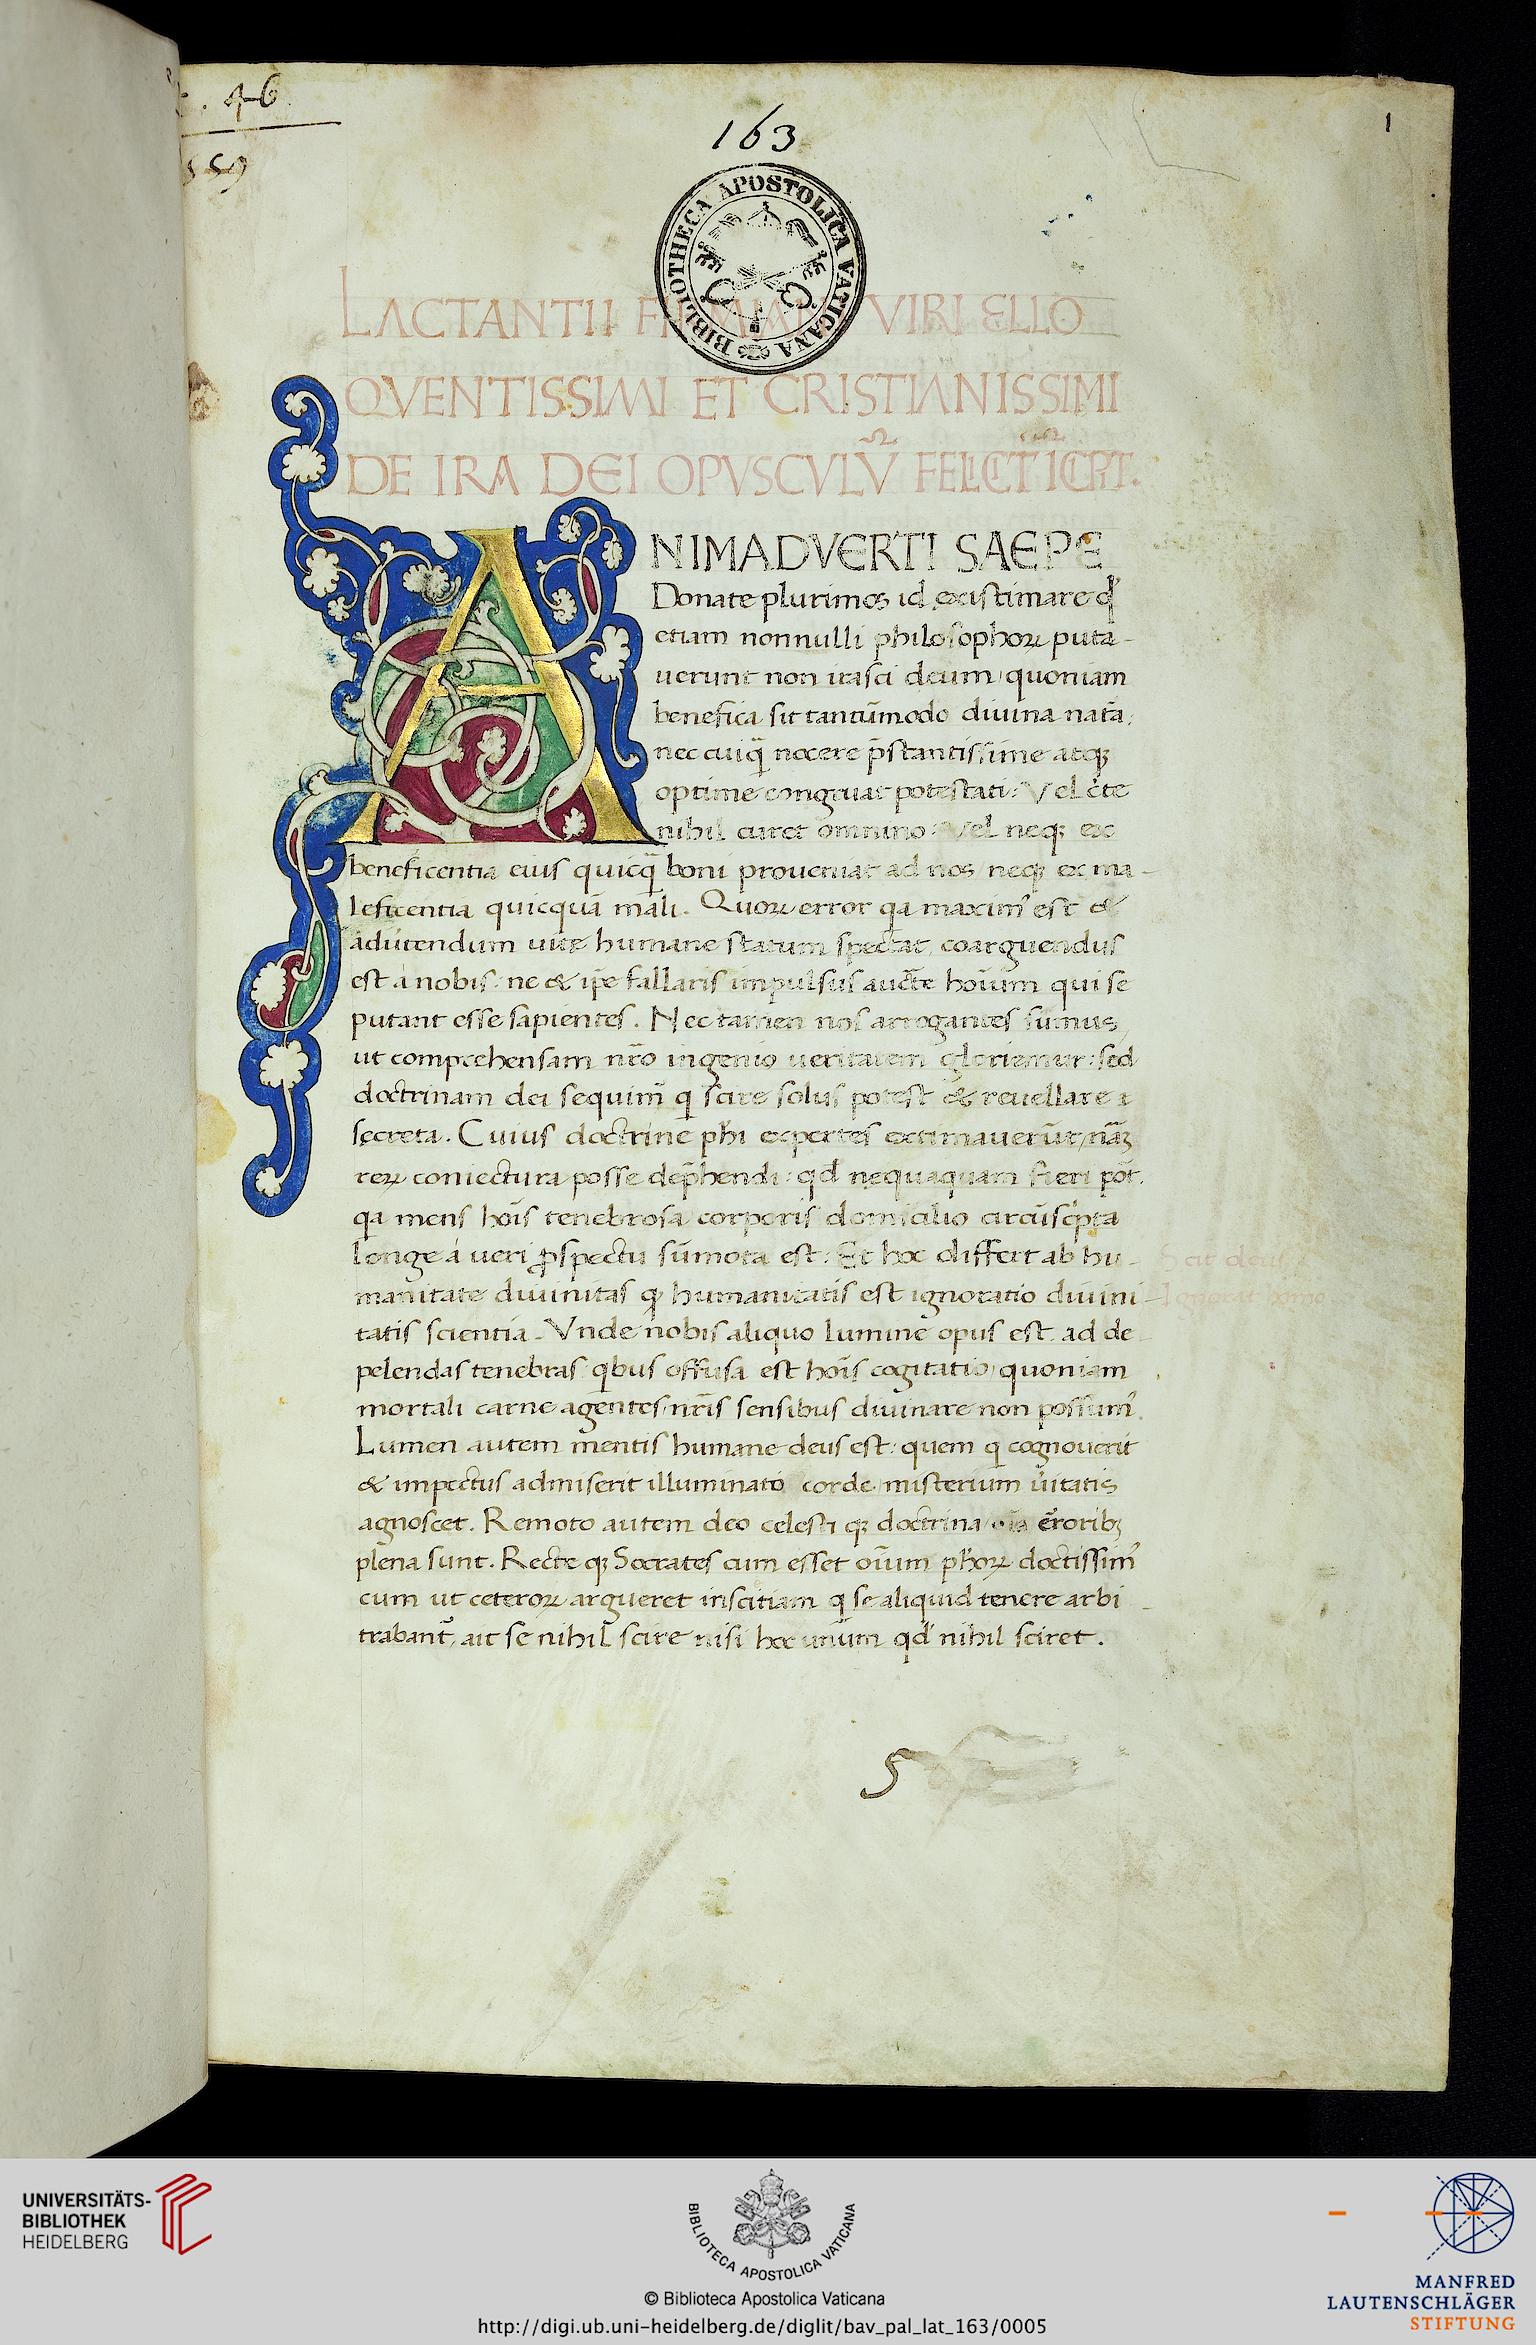 . 46
559
163
1
BIBLIOTHECA APOSTOLICA VATICANA
LACTANTII FIRMIANI VIRI ELLO
QVENTISSIMI ET CRISTIANISSIMI
DE IRA DEI OPVSCVLV̄ FELICT ICPT.
ANIMADVERTI SAEPE
Donate plurimos id existimare qd
etiam nonnulli philosophoꝝ puta-
uerunt non irasci deum, quoniam
benefica sit tantūmodo diuina nat̄a,
nec cuiq̄ nocere p̄stantissime atqꝫ
optime congruat potestati: Vel c̄te
nihil curet omnino: Vel neqꝫ ex
beneficentia eius quicq̄ boni proueniat ad nos, neqꝫ ex ma-
leficentia quicquā mali. Quoꝝ error qa maxim᷒ est &
ad uertendum uite humane statum spectat, coarguendus
est a nobis: ne & ip̄e fallaris impulsus aucte hoīum qui se
putant esse sapientes. Nec tamen nos arrogantes sumus,
ut comprehensam nr̄o ingenio ueritatem gloriemur: sed
doctrinam dei sequim̄ q scire solus potest & reuellare
secreta. Cuius doctrine ph̄i expertes extimauerūt, nāꝫ
reꝝ coniectura posse dep̄hendi: qd̄ nequaquam fieri pōt.
qa mens hōis tenebroso corporis domicilio circūscpta
longe a ueri ꝓspectu sūmota est: Et hoc differt ab hu-
manitate diuinitas qꝫ humanitatis est ignoratio diuini-
tatis scientia. Vnde nobis aliquo lumine opus est ad de-
pelendas tenebras qbus offusa est hoīs cogitatio, quoniam
mortali carne agentes nr̄is sensibus diuinare non possum᷒.
Lumen autem mentis humane deus est: quem q cognouerit
& in pectus admiserit illuminato corde misterium ūitatis
agnoscet. Remoto autem deo celesti qꝫ doctrina, oīa erroribꝫ
plena sunt. Recte qꝫ Socrates cum esset oīum ph̄oꝝ doctissim᷒
cum ut ceteroꝝ argueret inscitiam q se aliquid tenere arbi-
trabant᷒, ait se nihil scire nisi hoc unum qd̄ nihil sciret.
Scit deus
Ignorat homo
5
UNIVERSITÄTS-
BIBLIOTHEK
HEIDELBERG
BIBLIOTECA APOSTOLICA VATICANA
© Biblioteca Apostolica Vaticana
http://digi.ub.uni-heidelberg.de/diglit/bav_pal_lat_163/0005
MANFRED
LAUTENSCHLÄGER
STIFTUNG